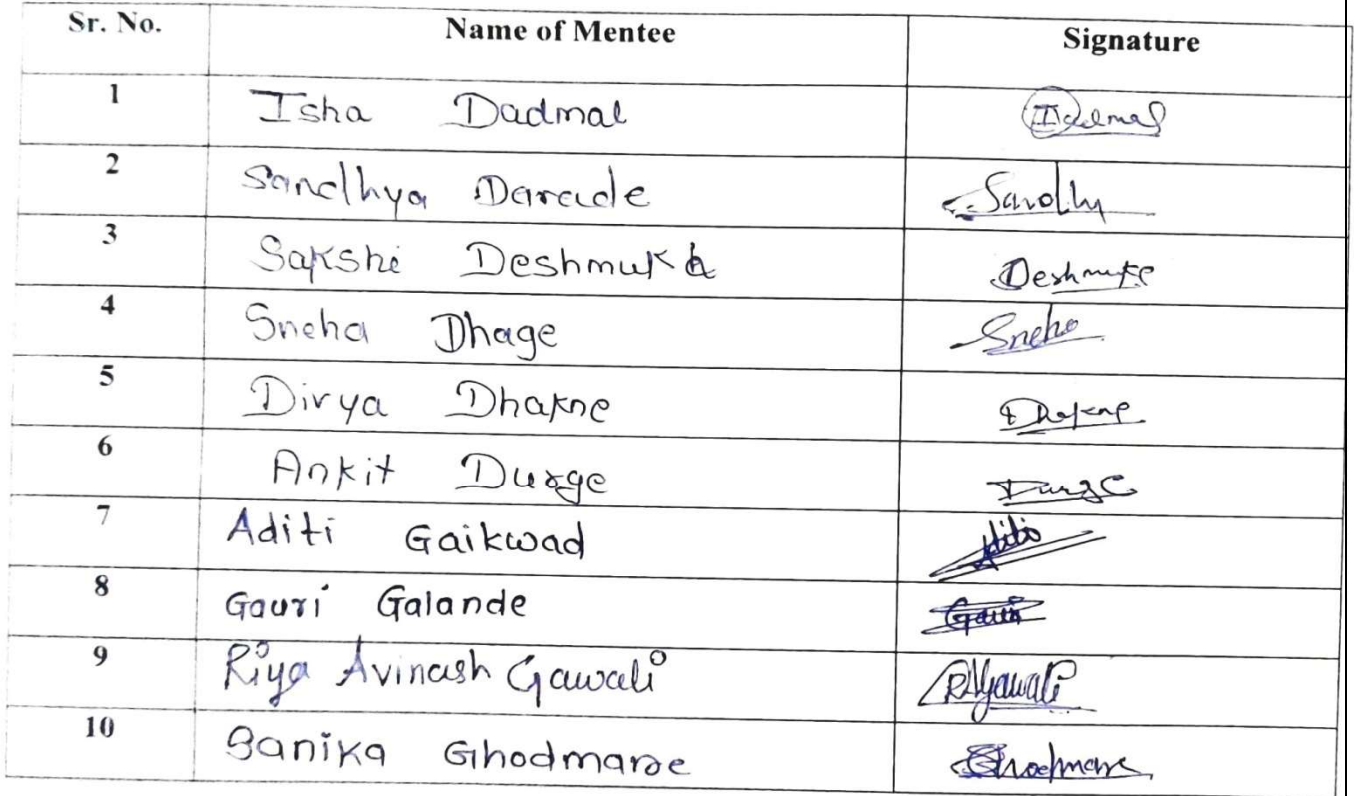 Sr. No. Name of Mentee Signature
1 Isha Dadmal Idadmal
2 Sandhya Darade Sandhy
3 Sakshi Deshmukh Deshmukh
4 Sneha Dhage Sneha
5 Divya Dhakne Dhakne
6 Ankit Durge Durge
7 Aditi Gaikwad Aditi
8 Gauri Galande Gauri
9 Riya Avinash Gawali RAGawali
10 Sanika Ghodmare Ghodmare